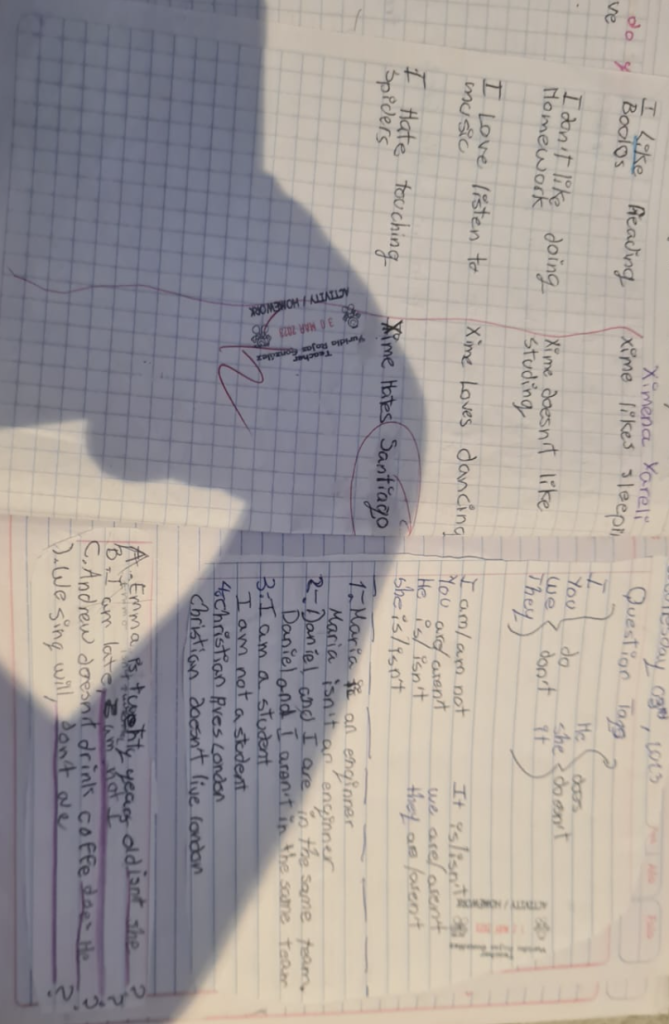 do y
ve
I Like Reading
Books
I don't like doing
Homework
I Love listen to
music
I Hate touching
Spiders
Ximena Yareli
xime likes sleepin
Xime doesn't like
studing
Xime Loves dancing
Xime Hates Santiago
ACTIVITY / HOMEWORK
MAR
Teacher
Question Tags
I
You
We
They
do
don't
He
she
It
does
doesn't
I am/am not
You are/arent
He is/isn't
she is/isn't
It is/isn't
we are/arent
they are/arent
ACTIVITY / HOMEWORK
1.- Maria is an enginner
Maria isn't an enginner
2.- Daniel and I are in the same team.
Daniel and I aren't in the same team
3.- I am a student
I am not a student
4. Christian lives London
Christian doesn't live london
A. Emma is twenty years old isnt she ?
B.- I am late, am not I ?
C. Andrew doesn't drink coffe does He ?
We sing will, don't we ?